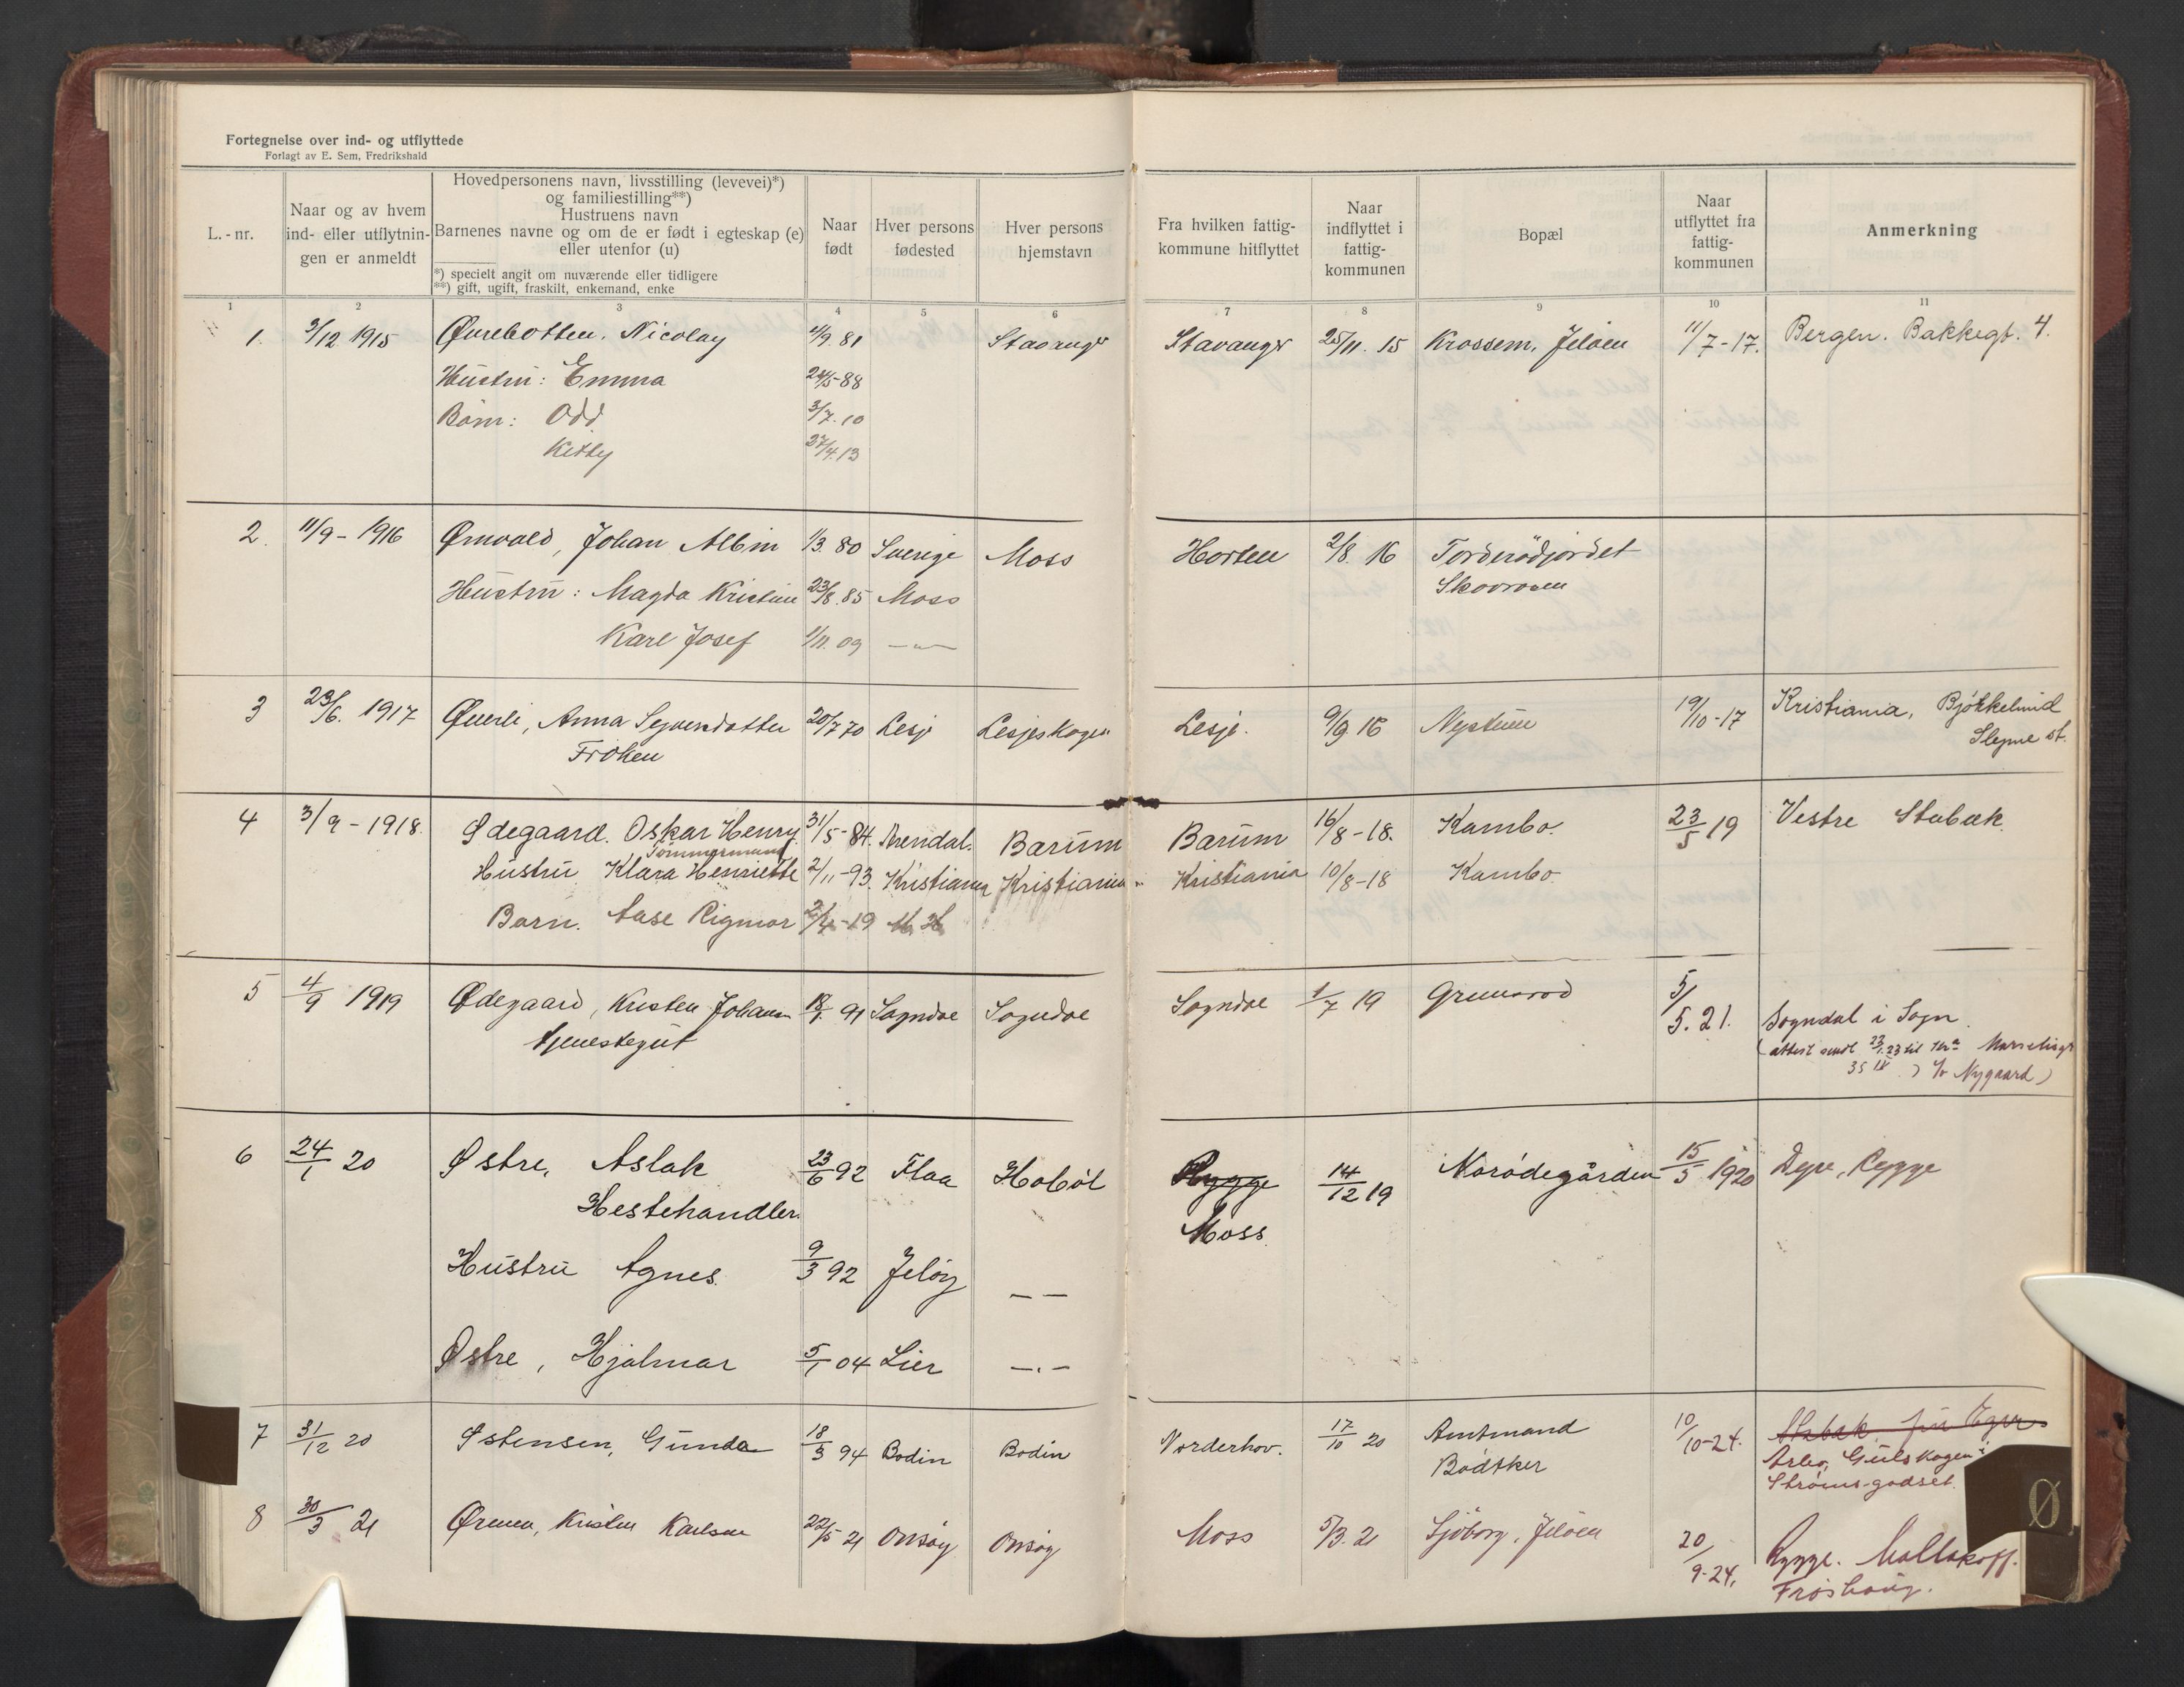 Fortegnelse over ind- og utflyttede
Forlagt av E. Sem, Fredrikshald
L.-nr.
Naar og av hvem ind- eller utflytningen er anmeldt
Hovedpersonens navn, livsstilling (levevei)*)
og familiestilling**)
Hustruens navn
Barnenes navne og om de er født i egteskap (e)
eller utenfor (u)
*) specielt angit om nuværende eller tidligere
**) gift, ugift, fraskilt, enkemand, enke
Naar født
Hver persons fødested
Hver persons hjemstavn
Fra hvilken fattigkommune hitflyttet
Naar indflyttet i fattigkommunen
Bopæl
Naar utflyttet fra fattigkommunen
Anmerkning
1 2 3 4 5 6 7 8 9 10 11
1. 3/12 1915 Øvrebotten, Nicolay 4/9. 81 Stavanger Stavanger 25/11. 15 Krossern, Jeløen 11/7-17. Bergen. Bakkegt. 4.
Hustru: Emma 24/5-88
Barn: Odd 3/7. 10
Kitty 27/4. 13
2. 11/9-1916 Ørnvold, Johan Albin 1/3. 80 Sverige Moss Horten 2/8. 16 Torderødjordet
Skovroen
Hustru: Magda Kristine 23/8. 85 Moss
Karl Josef 1/11. 09 —"—
3 23/6. 1917 Øverli, Anna Syverdatter 20/7 70 Lesje Lesjeskogen Lesje. 9/9 16 Neptun 19/10-17 Kristiania, Bjökkelund
Frøken Slepne st.
4 3/9-1918. Ødegaard. Oskar Henry. 31/5-84. Arendal. Barum Barum 16/8-18. Kambo. 23/5 19 Vestre Stabæk
Tømmermand
Hustru Klara Henriette 2/11-93. Kristiania Kristiania Kristiania 10/8-18 Kambo
Barn. Aase Rigmor 2/4-19
5 4/9 1919 Ødegaard, Kristen Johan 18/1. 91 Sogndal Sogndal Sogndal 1/7 19 Grimsrød 5/5. 21. Sogndal i Sogn.
tjenestegut
(attest sendt 23/1. 23 til Kr.a
35 IV) c/o Nygaard)
6 24/1 20 Østre, Aslak 23/6 92 Flaa Hobøl Rygge 14/12 19 Norödegården 15/5 1920 Dyre, Rygge
Hestehandler. Moss
Hustru Agnes. 9/3 92 Jeløy — —
Østre, Hjalmar 5/1 04 Lier —.—
7 31/12 20 Østensen, Gunda 18/3 94 Bodin Bodin Norderhov. 17/10 20 Amtmand
Bødtker 10/10-24. Stabæk
Arbo, Gulskogen i
Strøms-godset.
8 30/3 21 Ørmen, Kristen Karlsen 22/5 21 Onsøy Onsøy Moss 5/3. 21 Sjöborg, Jeløen 20/9-24. Rygge. Mallakoff.
Frøshaug.
Ø